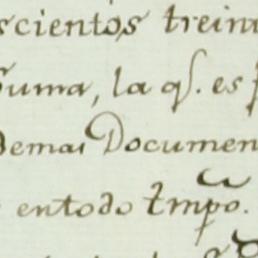 scientos trein
Suma, la q̃. es
Demas Documen
entodo tmpo.